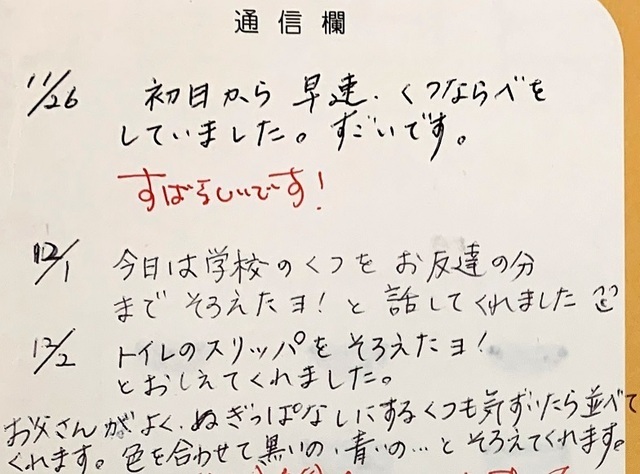 通信欄
11/26 初日から早速、くつならべを
していました。すごいです。
すばらしいです!
12/1 今日は学校のくつをお友達の分
までそろえたヨ!と話してくれました
12/2 トイレのスリッパをそろえたヨ!
とおしえてくれました。
お父さんがよく、ぬぎっぱなしにするくつも気ずいたら並べて
くれます。色を合わせて黒いの、青いの…とそろえてくれます。